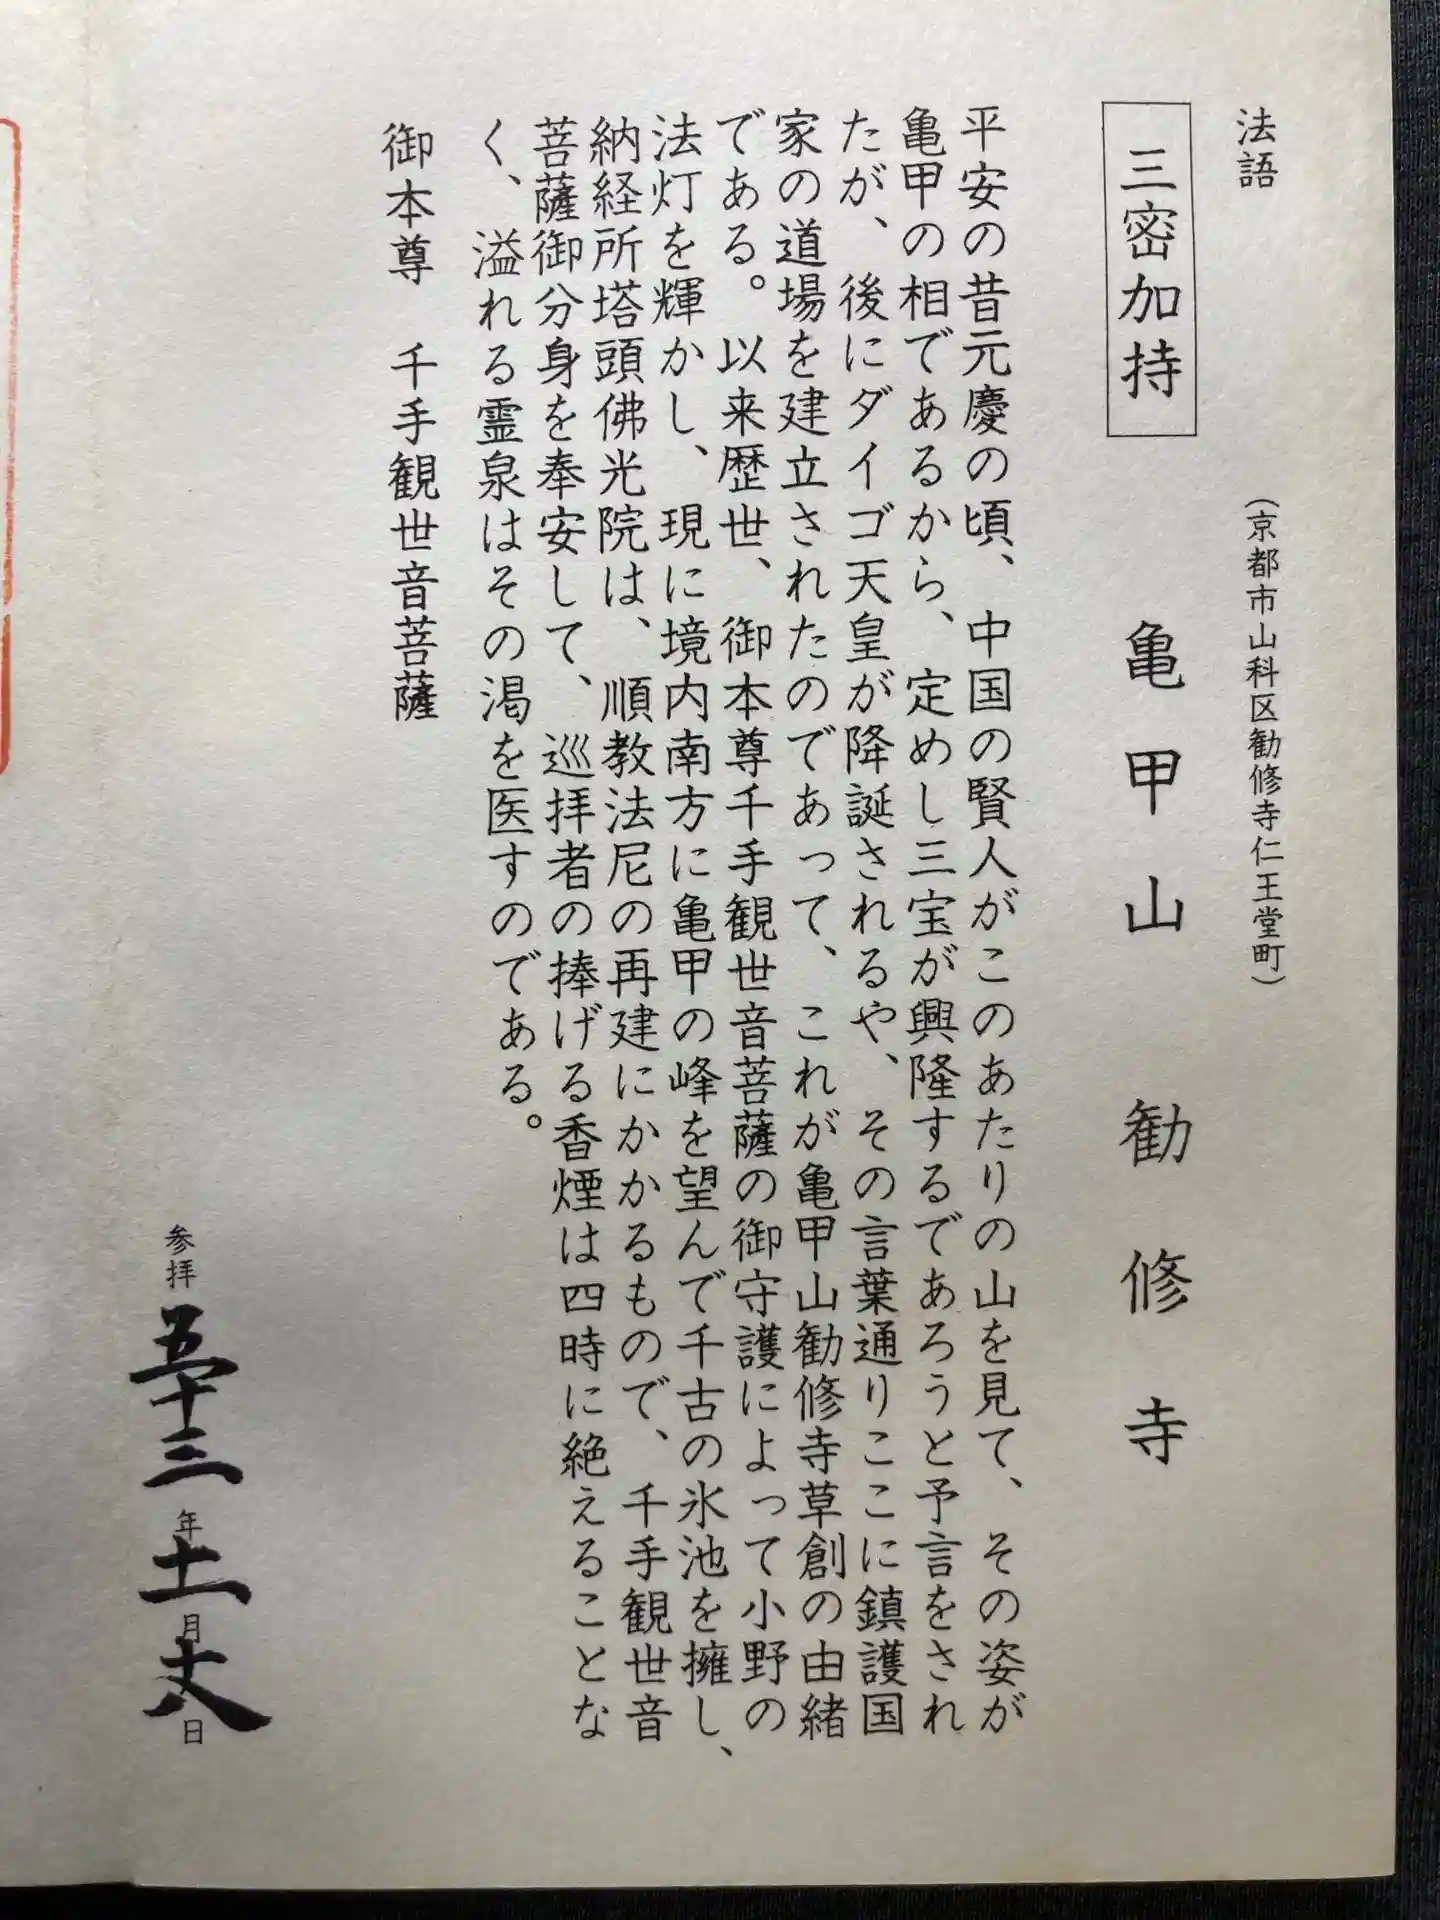 法語
(京都市山科区勧修寺仁王堂町)
三密加持
亀甲山 勧修寺
平安の昔元慶の頃、中国の賢人がこのあたりの山を見て、その姿が
亀甲の相であるから、定めし三宝が興隆するであろうと予言をされ
たが、後にダイゴ天皇が降誕されるや、その言葉通りここに鎮護国
家の道場を建立されたのであって、これが亀甲山勧修寺草創の由緒
である。以来歴世、御本尊千手観世音菩薩の御守護によって小野の
法灯を輝かし、現に境内南方に亀甲の峰を望んで千古の氷池を擁し、
納経所塔頭佛光院は、順教法尼の再建にかかるもので、千手観世音
菩薩御分身を奉安して、巡拝者の捧げる香煙は四時に絶えることな
く、溢れる霊泉はその渇を医すのである。
御本尊 千手観世音菩薩
参拝 五十三年十一月十八日